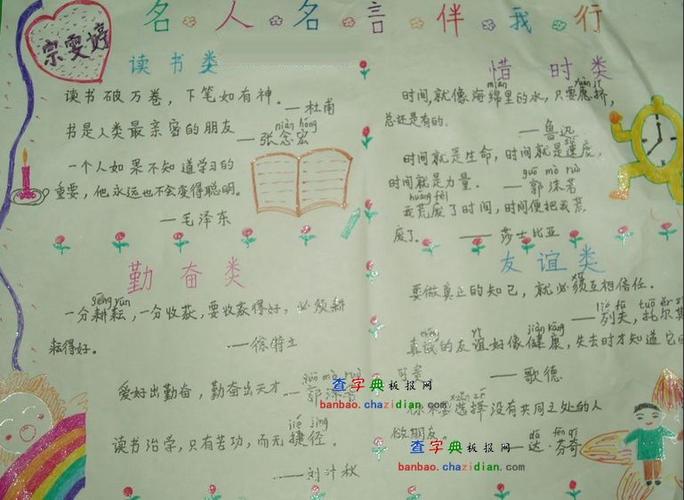 宗雯婷
名人名言伴我行
读书类
读书破万卷，下笔如有神。—杜甫
niàn hóng
书是人类最亲密的朋友—张念宏
一个人如果不知道学习的
重要，他永远也不会变得聪明。
—毛泽东
勤奋类
gēng yún
一分耕耘，一分收获，要收获得好，必须耕
耘得好。
—徐特立
爱好出勤奋，勤奋出天才—郭沫若
jié jìng
读书治学，只有苦功，而无捷径。
惜时类
mián
时间，就像海绵里的水，只要愿挤，
总还是有的。—鲁迅
时间就是生命，时间就是速度，
guō mò ruò
时间就是力量。—郭沫若
huāng fèi
我荒废了时间，时间便把我荒
废了。—莎士比亚
友谊类
要做真正的知己，就必须互相信任。
—列夫，托尔斯
真诚的友谊好像健康，失去时才知道它
—歌德
选择没有共同之处的人
做朋友。—达·芬奇
查字典板报网
banbao.chazidian.com
查字典板报网
banbao.chazidian.com